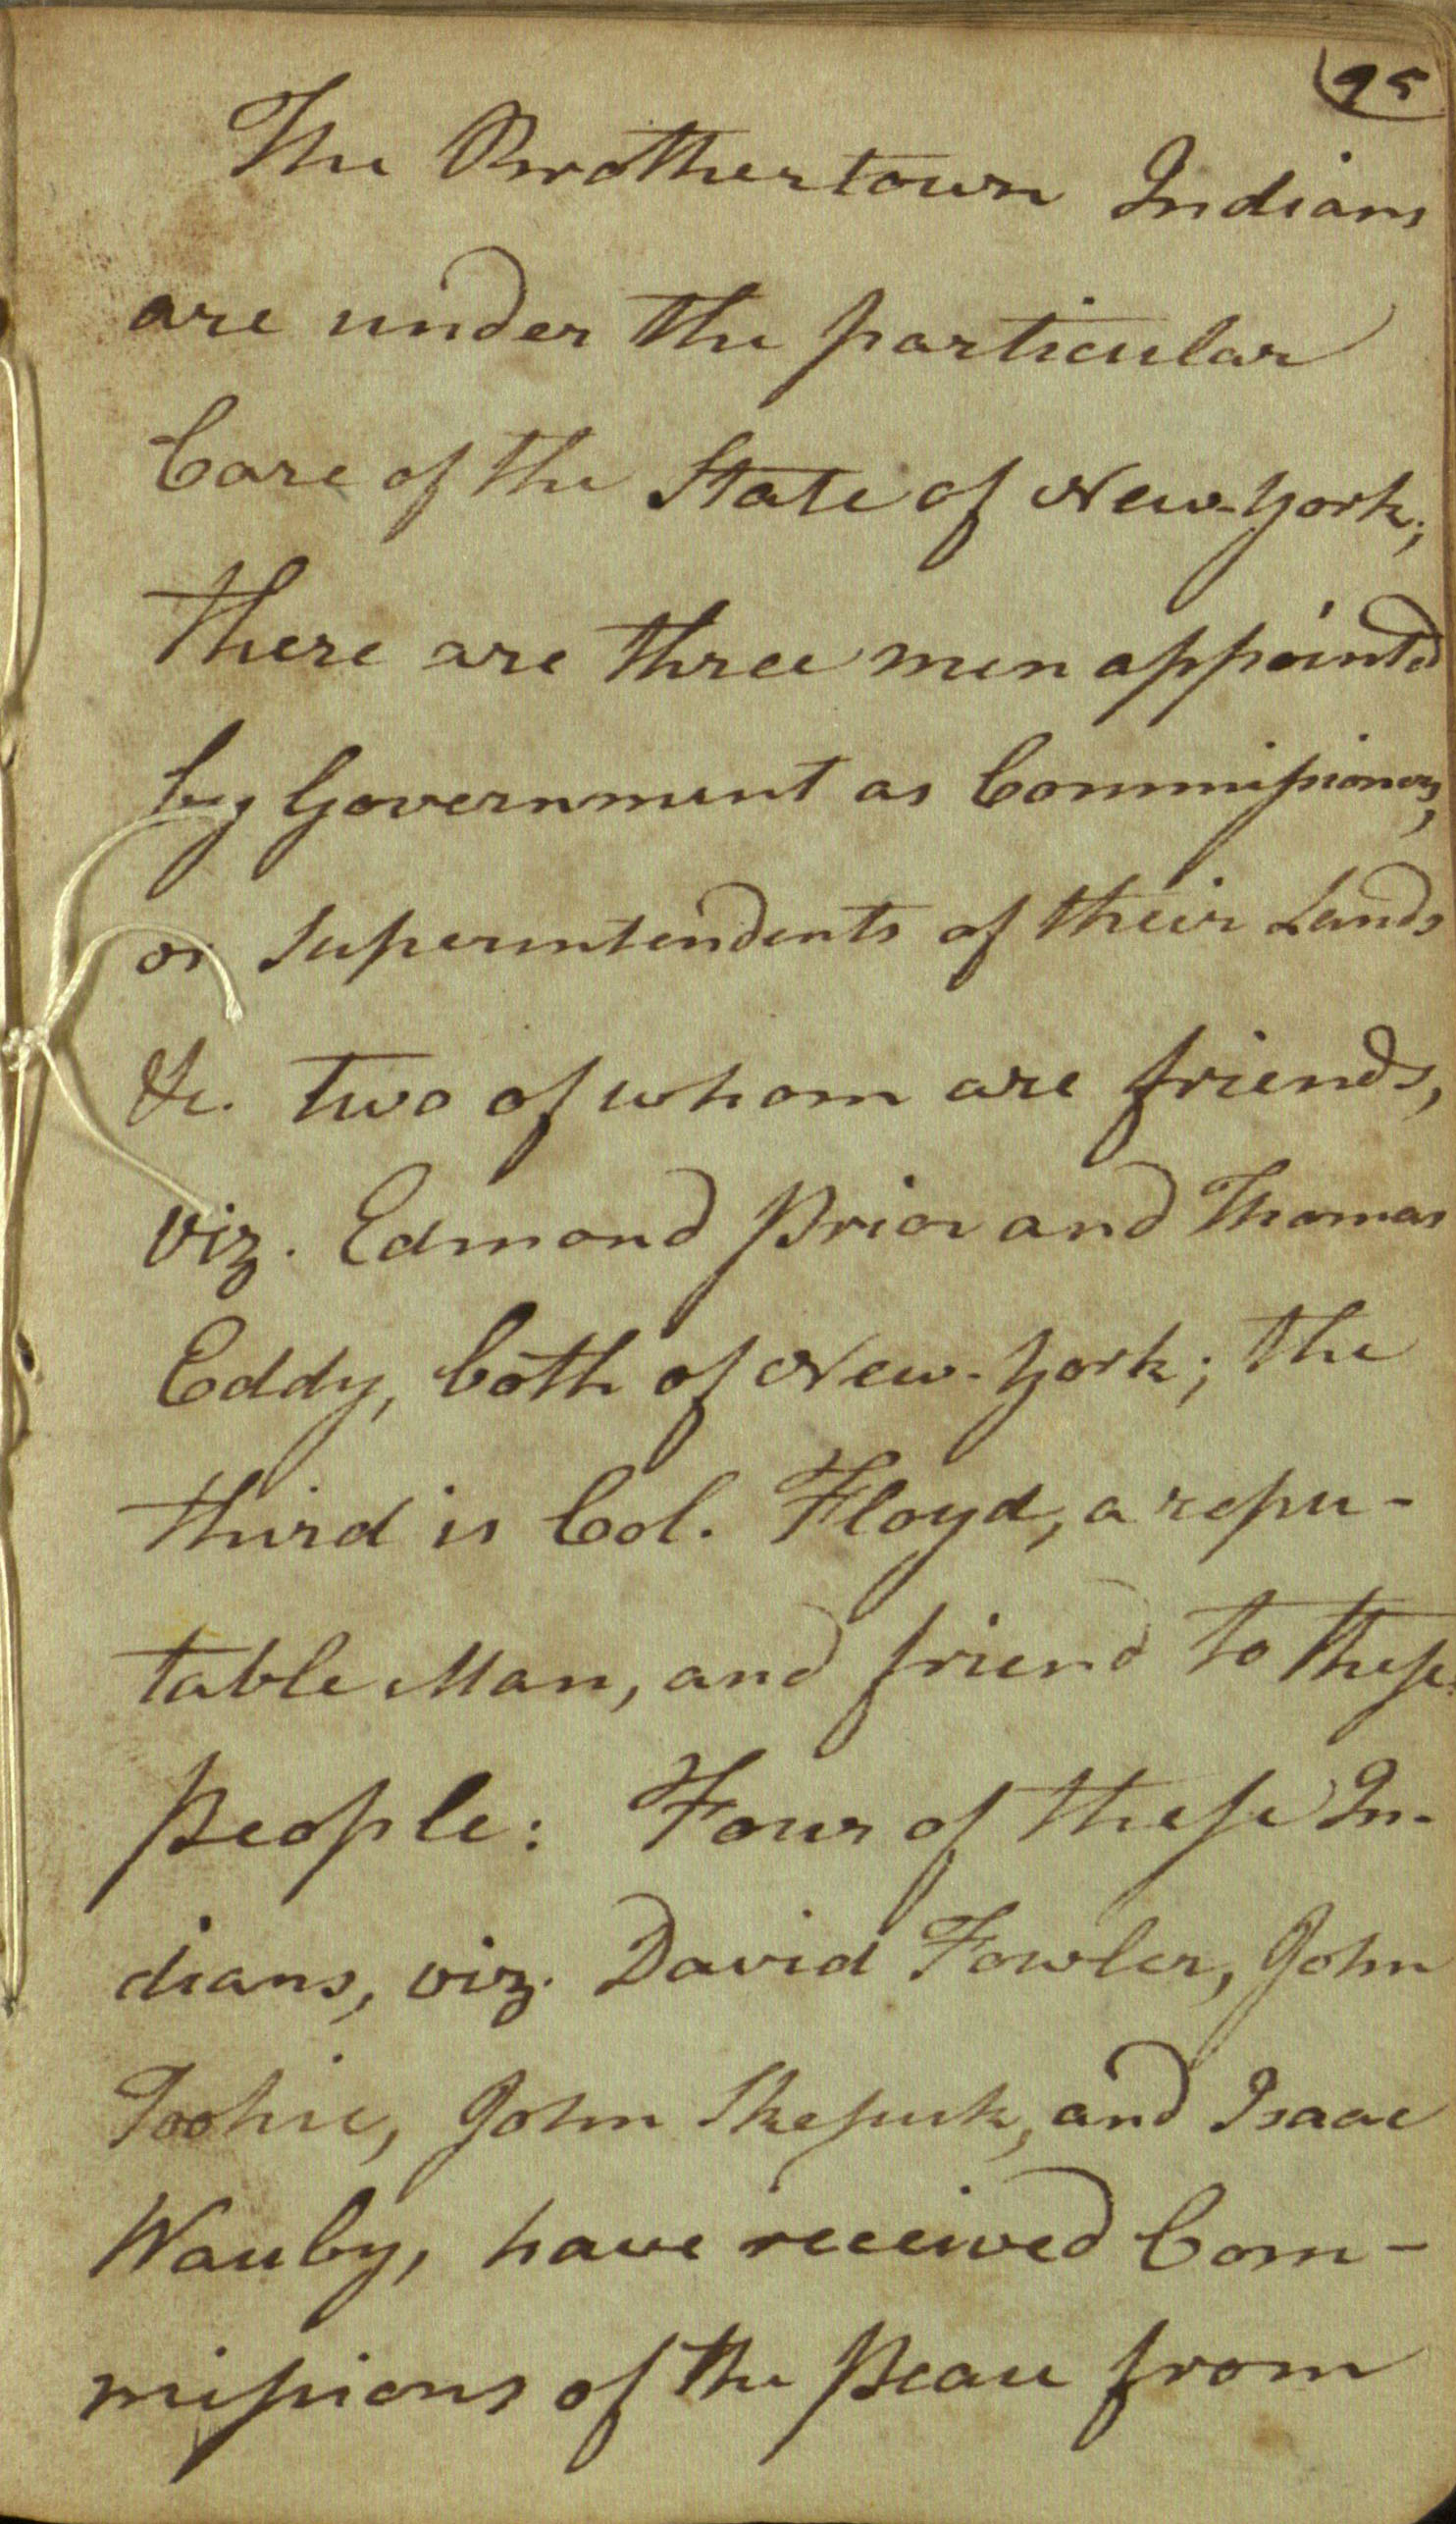 95
The Brothertown Indians
are under the particular
Care of the State of New-York;
there are three men appointed
by Government as Commissioners,
or superintendents of their Lands
&c. two of whom are friends,
viz. Edmond Prior and Thomas
Eddy, both of New-York; the
third is Col. Floyd, a repu-
table Man, and friend to these
People: Four of these In-
dians, viz. David Fowler, John
John and Isaac
Wauby, have received Com-
missions of the Peace from